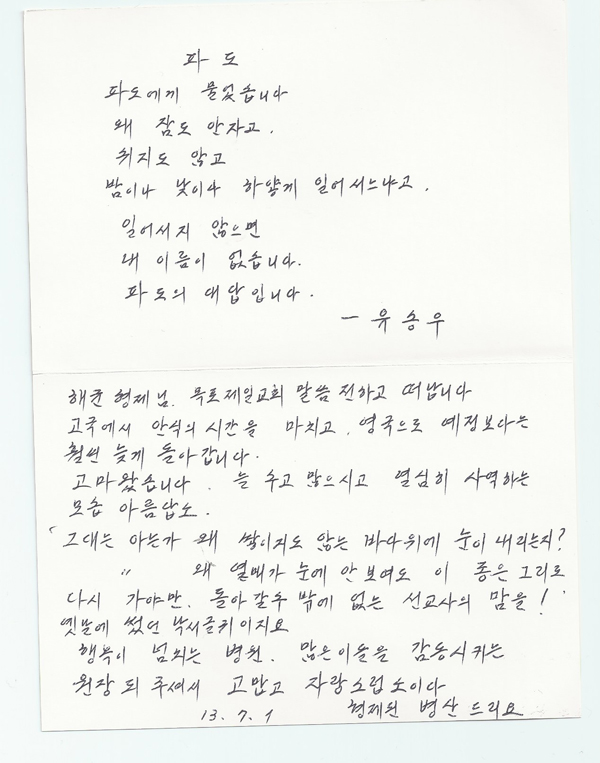 파 도
파도에게 물었습니다
왜 잠도 안자고.
쉬지도 않고
밤이나 낮이나 하얗게 일어서느냐고.
일어서지 않으면
내 이름이 없습니다.
파도의 대답입니다.
- 유승우
해균 형제님. 목포제일교회 말씀 전하고 떠납니다
고국에서 안식의 시간을 마치고, 영국으로 예정보다는
훨씬 늦게 돌아갑니다.
고마왔습니다. 늘 수고 많으시고 열심히 사역하는
모습 아름답소.
"그대는 아는가 왜 쌓이지도 않는 바다위에 눈이 내리는지?
" 왜 열매가 눈에 안 보여도 이 종은 그리로
다시 가야만. 돌아갈수 밖에 없는 선교사의 맘을!"
옛날에 썼던 낙서글귀이지요
행복이 넘치는 병원. 많은이들을 감동시키는
원장 되 주셔서 고맙고 자랑스럽소이다
13. 7. 1 형제된 병산 드리요